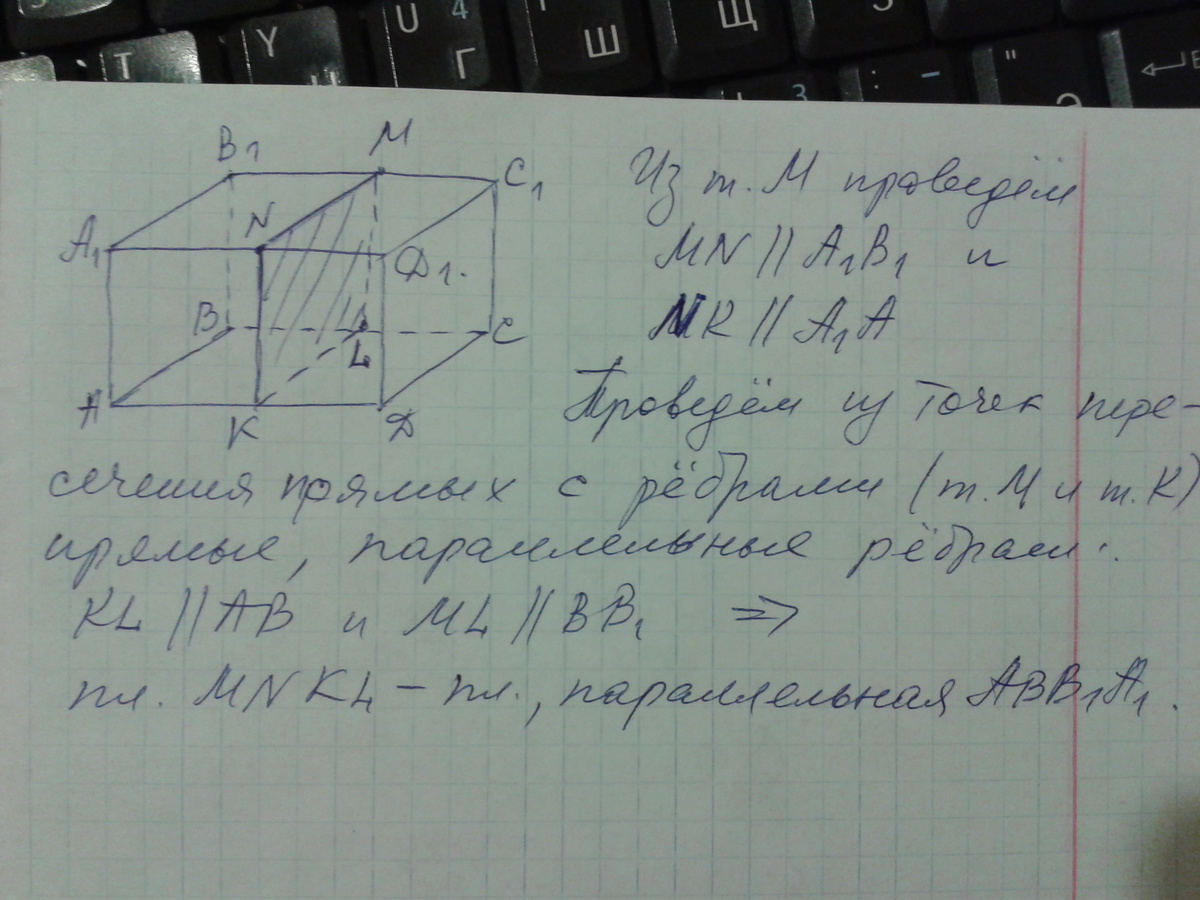 T
Y
U
4
Г
Ш
Щ
3
:
-
"
Э
B1
M
C1
A1
N
D1.
B
L
C
A
K
D
Из т. M проведём
MN || A1B1 и
NK || A1A
Проведём из точек пере-
сечения прямых с рёбрами (т. M и т. K)
прямые, параллельные рёбрам:
KL || AB и ML || BB1 =>
пл. MNKL – пл., параллельная ABB1A1.